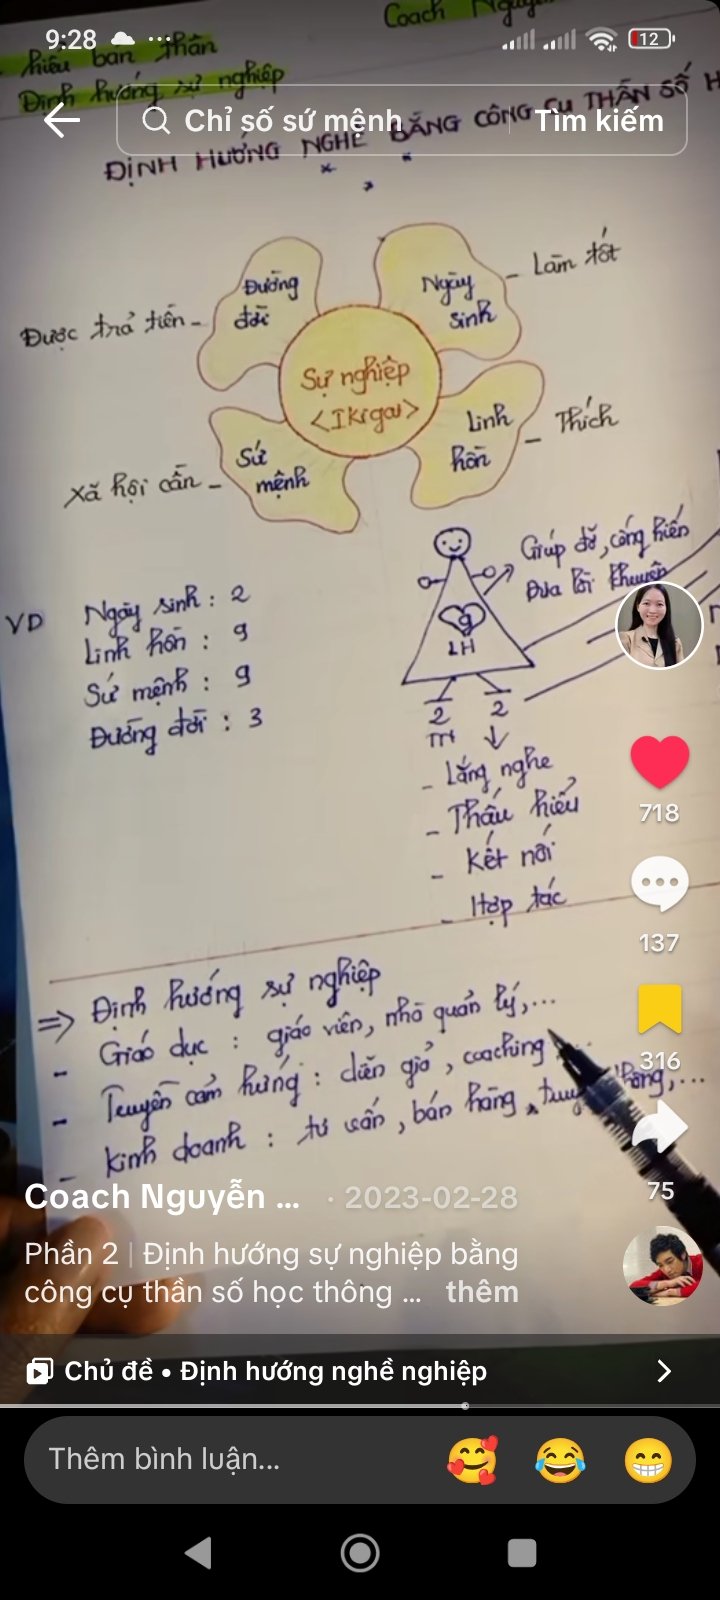 9:28
12
Coach Nguyễn
hiểu bản thân
Định hướng sự nghiệp
Chỉ số sứ mệnh
Tìm kiếm
ĐỊNH HƯỚNG NGHỀ BẰNG CÔNG CỤ THẦN SỐ H
Đường đời
Ngày sinh
Làm tốt
Được trả tiền
Sự nghiệp
<Ikigai>
Sứ mệnh
Linh hồn
Thích
Xã hội cần
VD
Ngày sinh : 2
Linh hồn : 9
Sứ mệnh : 9
Đường đời : 3
Giúp đỡ, cống hiến
Đưa lời khuyên
9
LH
2 2
TH
- Lắng nghe
- Thấu hiểu
- Kết nối
- Hợp tác
718
137
316
75
=> Định hướng sự nghiệp
- Giáo dục : giáo viên, nhà quản lý,...
- Truyền cảm hứng : diễn giả, coaching
- Kinh doanh : tư vấn, bán hàng, thông,...
Coach Nguyễn ... · 2023-02-28
Phần 2 | Định hướng sự nghiệp bằng
công cụ thần số học thông ... thêm
Chủ đề • Định hướng nghề nghiệp
Thêm bình luận...